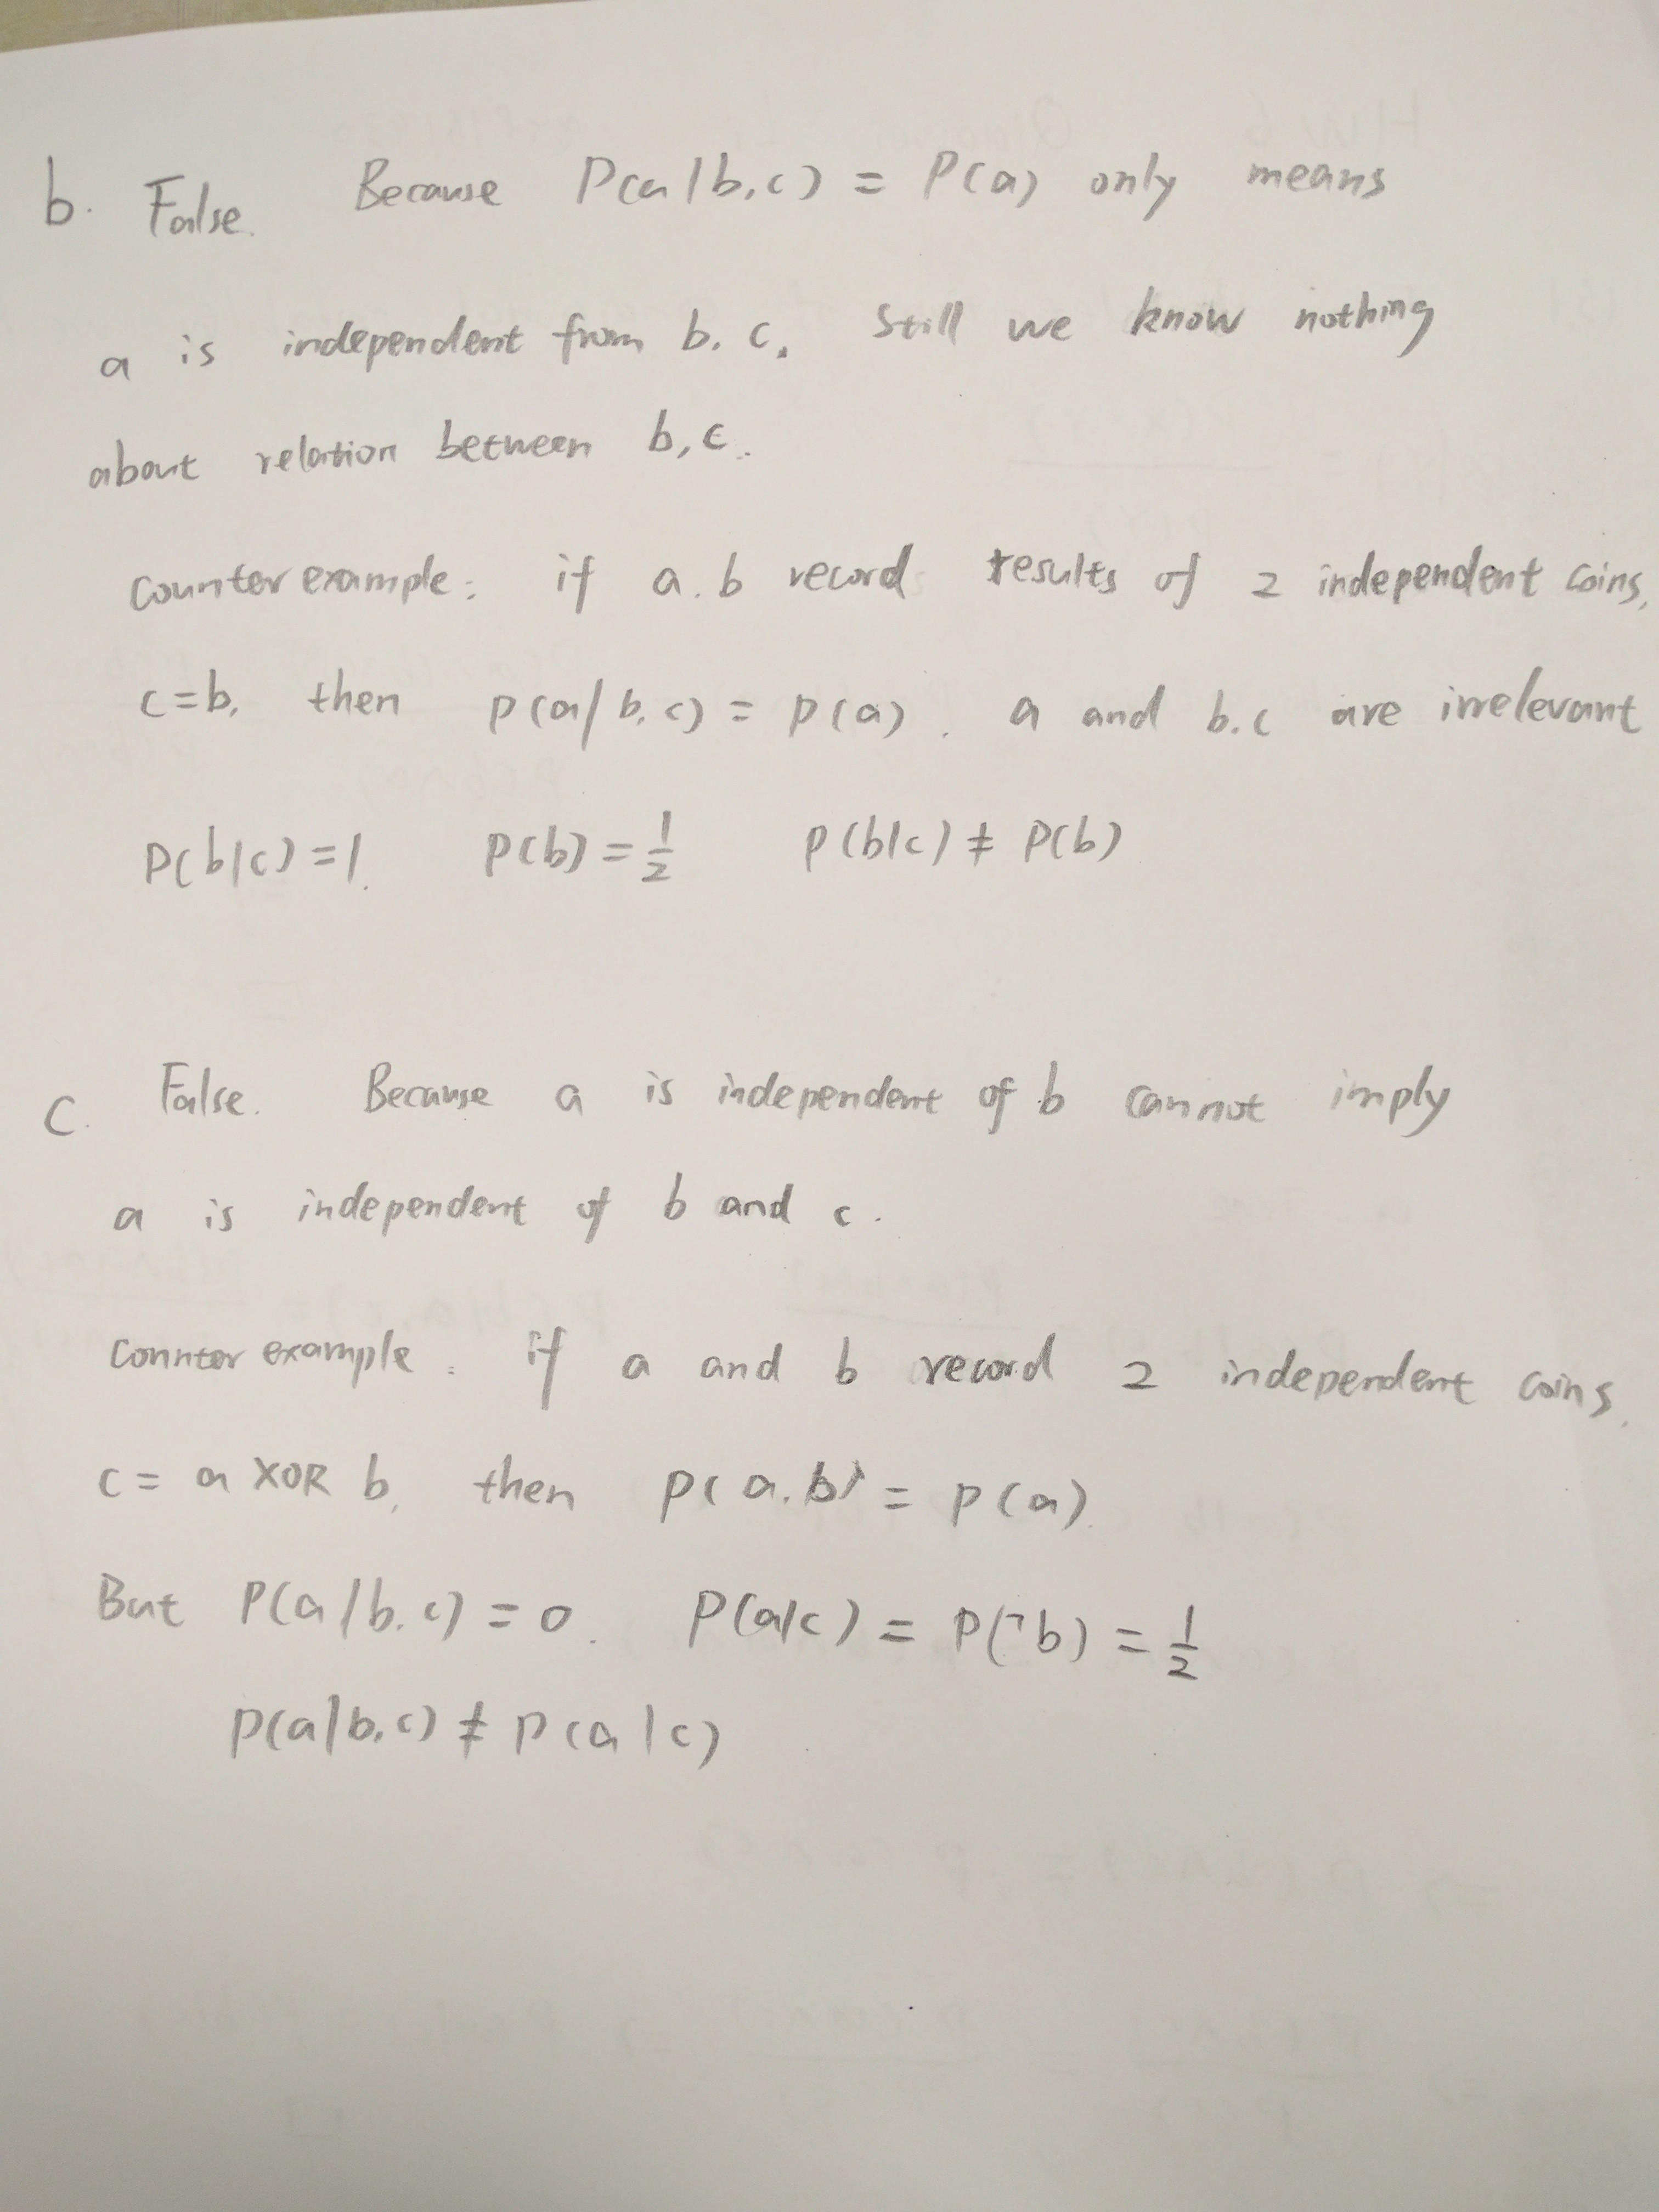 b. False. Because P(a|b,c) = P(a) only means
a is independent from b, c. Still we know nothing
about relation between b, c.
Counter example: if a.b record results of 2 independent coins,
c=b, then p(a|b,c) = p(a). a and b.c are irrelevant
P(b|c)=1. P(b)=1/2 p(b|c) ≠ P(b)
c. False. Because a is independent of b cannot imply
a is independent of b and c.
Counter example: if a and b record 2 independent coins.
c = a XOR b, then p(a.b) = p(a).
But P(a|b.c) = 0. P(a|c) = P(¬b) = 1/2
p(a|b.c) ≠ p(a|c)